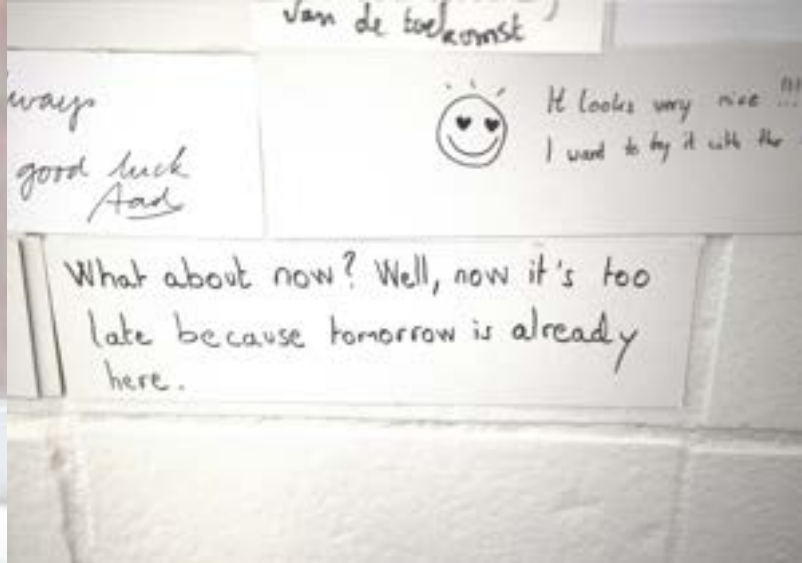 van de toekomst
good luck
Aad
It looks very nice !!!
I want to try it with the
What about now? Well, now it's too
late because tomorrow is already
here.